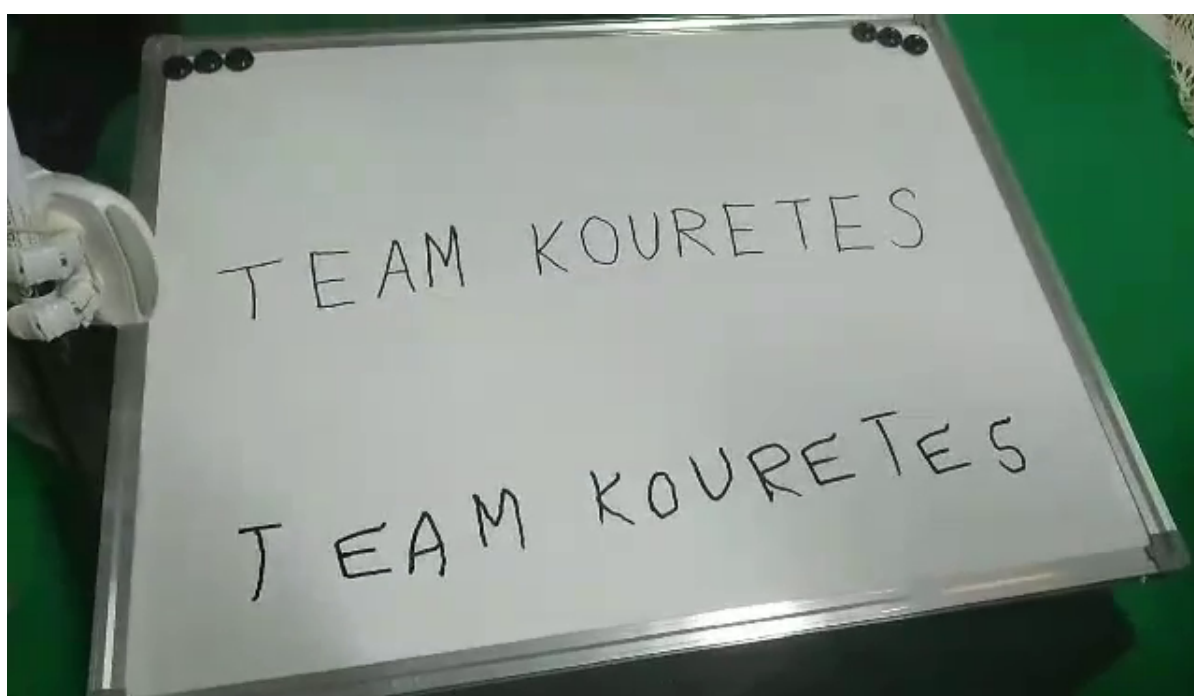 TEAM KOURETES
TEAM KOURETES